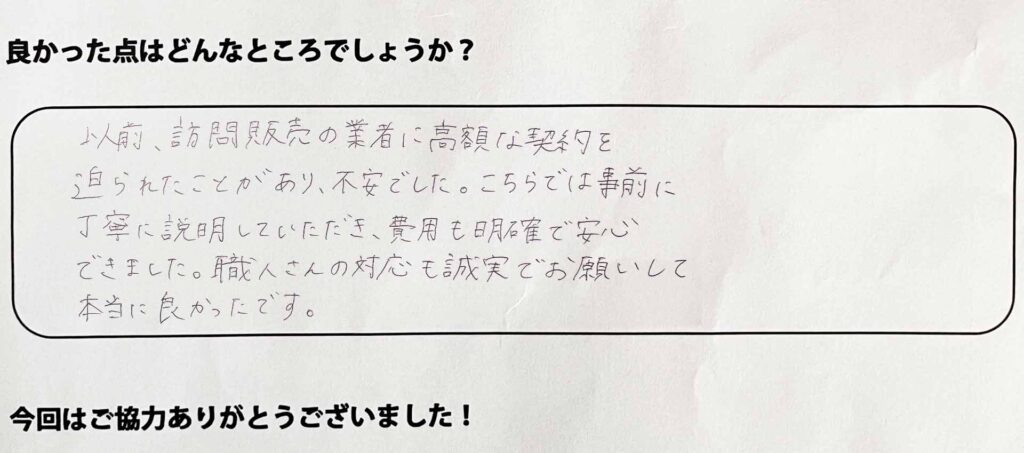 良かった点はどんなところでしょうか？
以前、訪問販売の業者に高額な契約を
迫られたことがあり、不安でした。こちらでは事前に
丁寧に説明していただき、費用も明確で安心
できました。職人さんの対応も誠実でお願いして
本当に良かったです。
今回はご協力ありがとうございました！